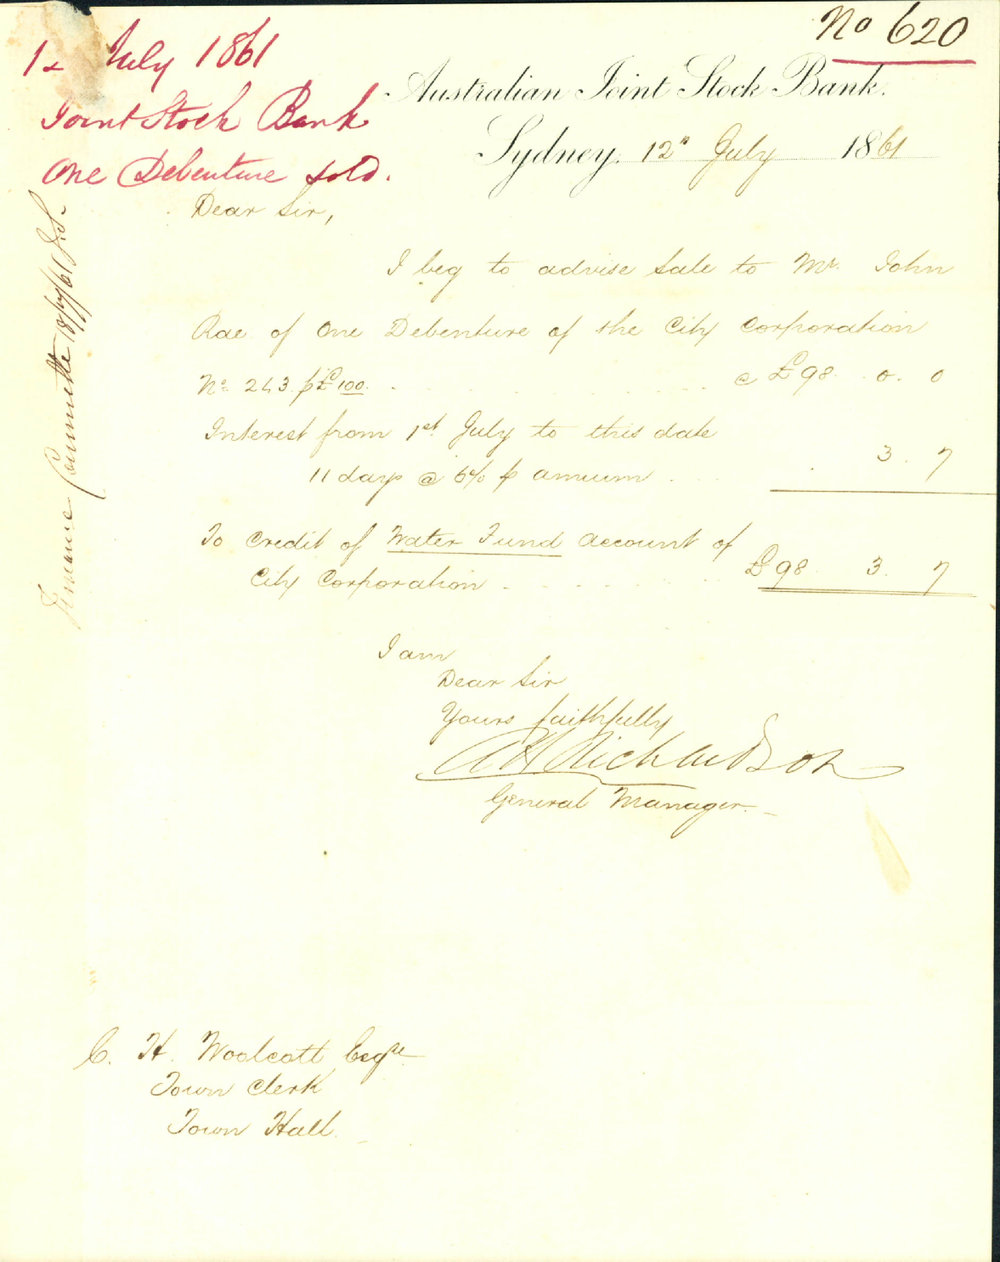 No 620
12 July 1861
Joint Stock Bank
One Debenture sold.
Australian Joint Stock Bank.
Sydney, 12" July 1861
Dear Sir,
I beg to advise Sale to Mr. John
Rae of One Debenture of the City Corporation
No. 243 p £100. @ £98. 0. 0
Interest from 1st July to this date
11 days @ 6% p annum 3. 7
To Credit of Water Fund Account of
City Corporation £98. 3. 7
I am
Dear Sir
Yours faithfully
A H Richardson
General Manager.
C. H. Woolcott Esqre
Town Clerk
Town Hall.
Finance Committee